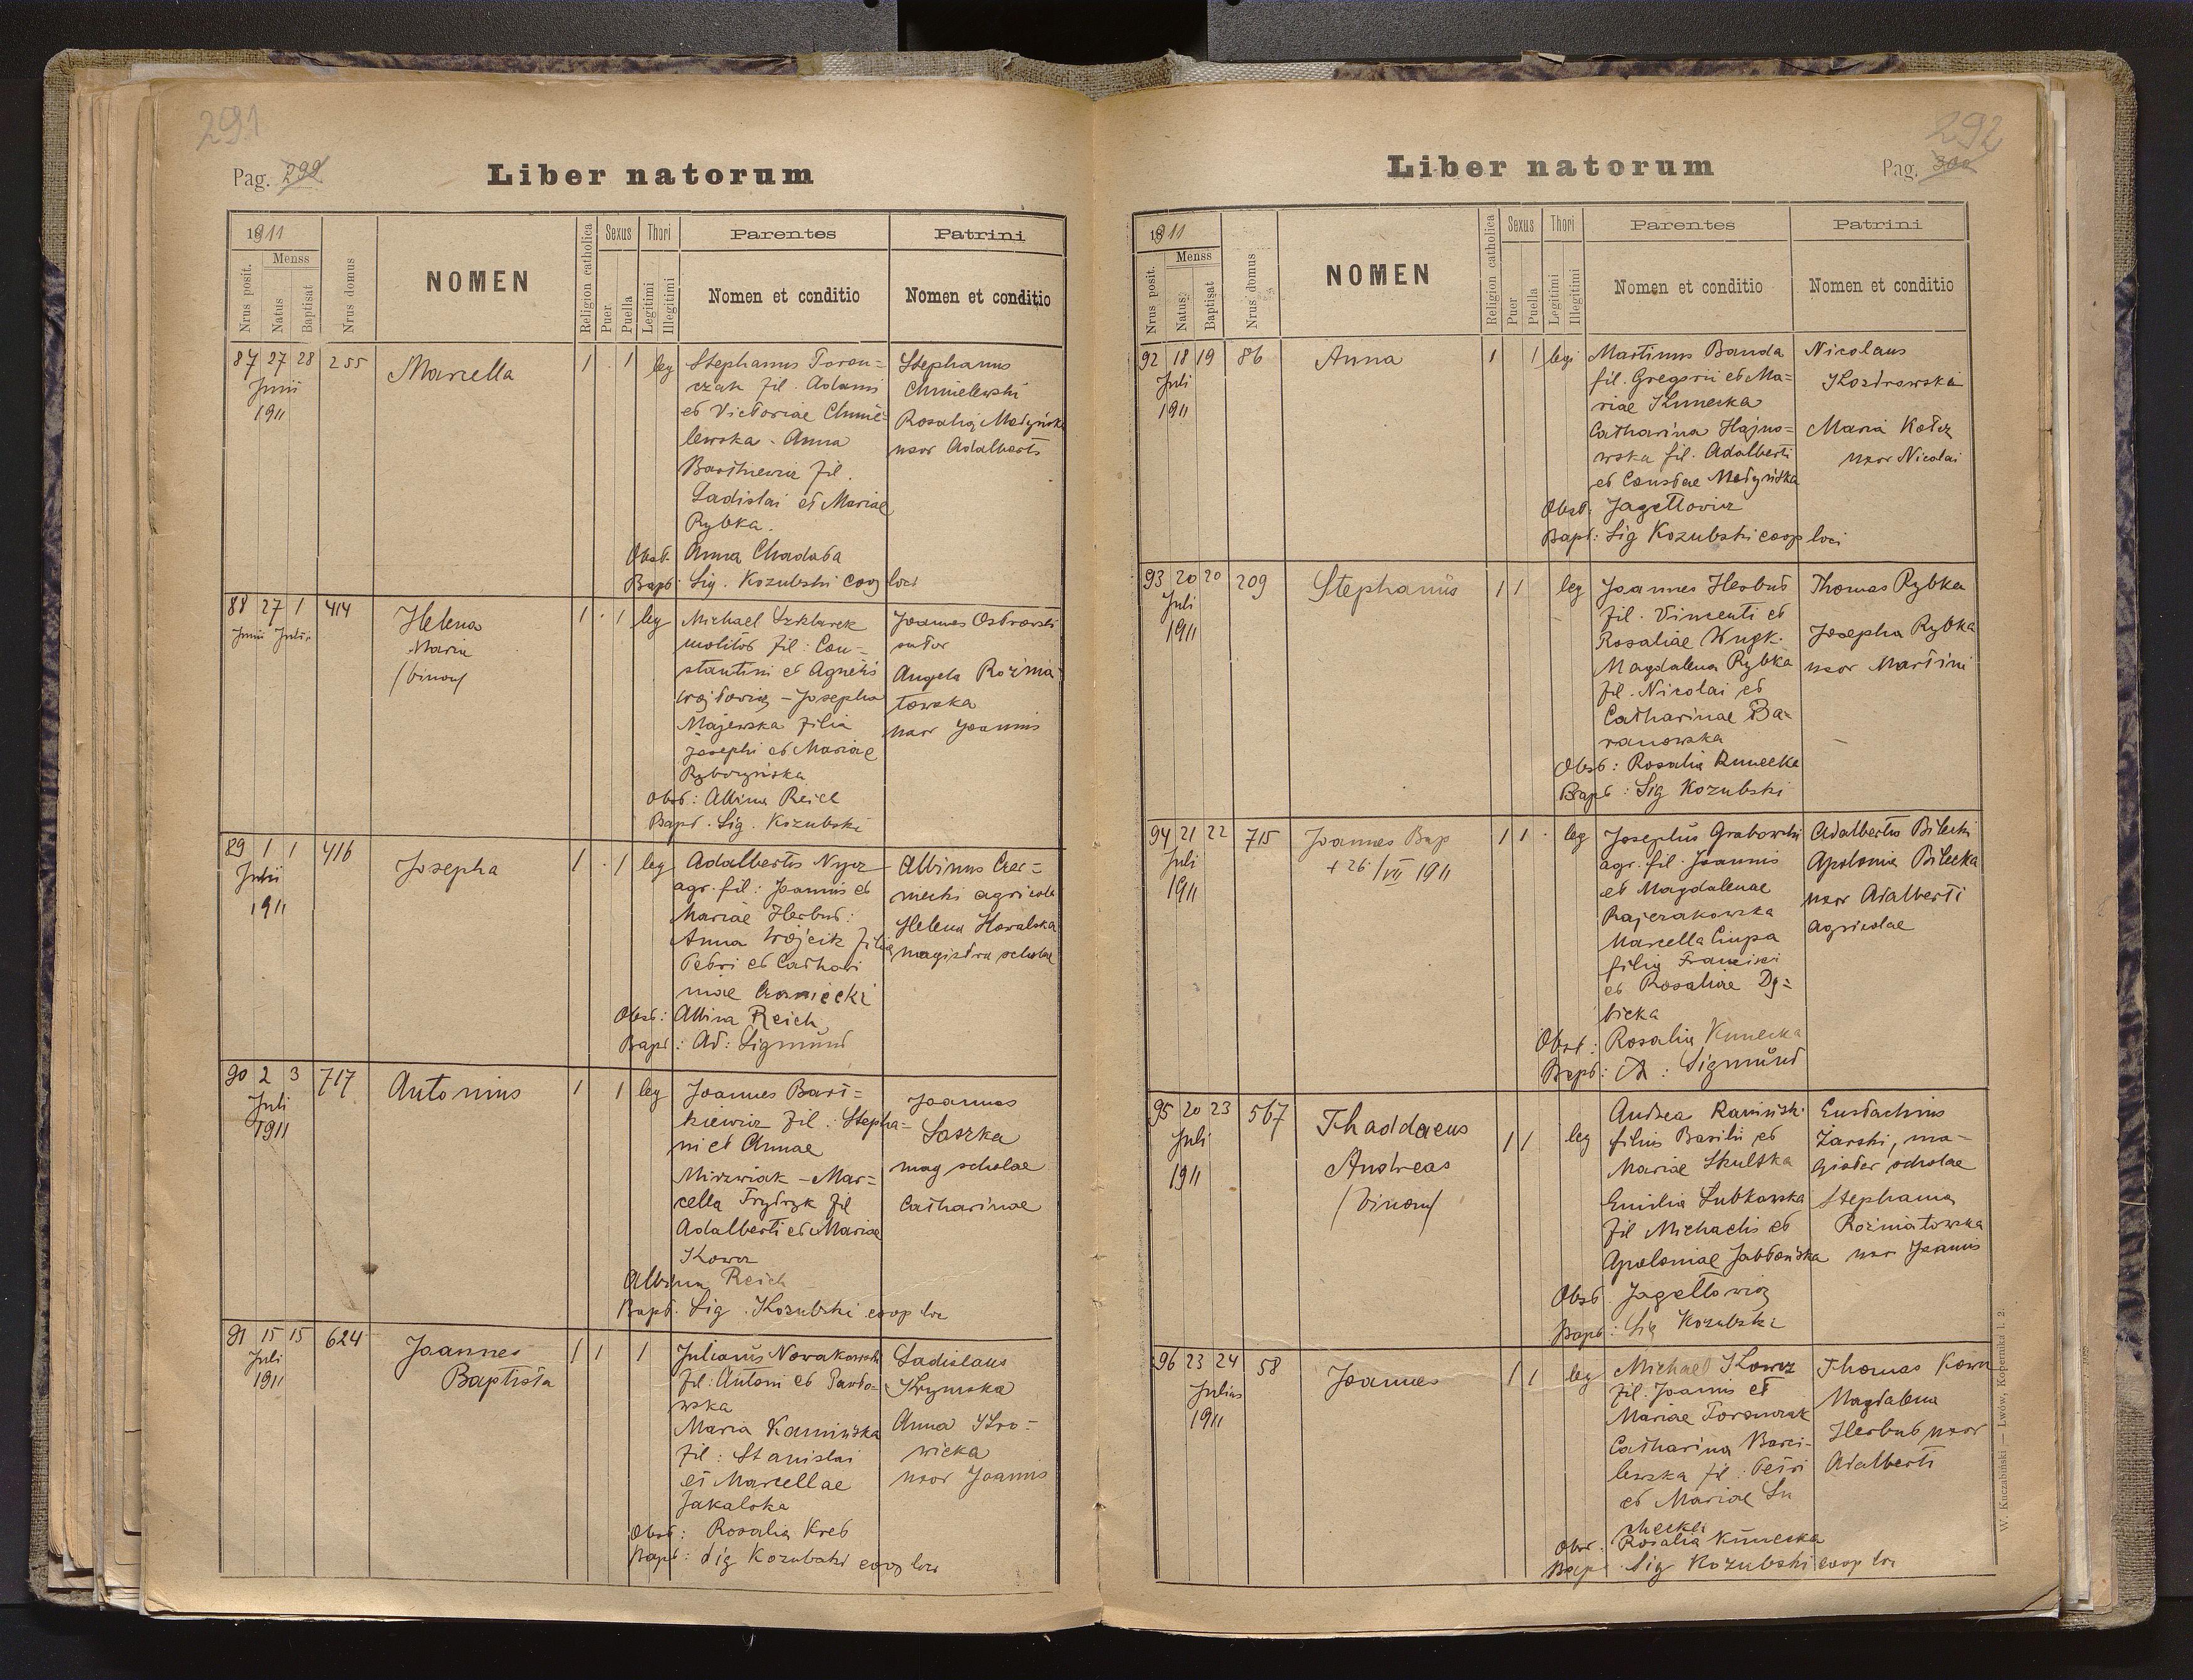 291
Pag. 299
Liber natorum
1911
Nrus posit.
Menss
Natus
Baptisat
Nrus domus
NOMEN
Religion catholica
Sexus
Puer
Puella
Thori
Legitimi
Illegitimi
Parentes
Nomen et conditio
Patrini
Nomen et conditio
87 27 28 255 Marcella 1 . 1 leg
Junii
1911
Stephanus Toron=
czak fil. Adami
et Victoriae Chmie=
lewska - Anna
Bartkiewicz fil.
Ladislai et Mariae
Rybka.
Obst. Anna Chadaba
Bapt: Sig. Kozubski coop loci
Stephanus
Chmielewski
Rosalia Medyńska
uxor Adalberti
88 27 1 414 Helena 1 . 1 leg
Junii Julii
Maria
/binom/
Michael Szklarek
molitor fil: Con=
stantini et Agnetis
Wojtowicz - Josepha
Majewska filia
Josephi et Mariae
Ryboryńska
Obst: Albina Reich
Bapt. Sig. Kozubski
Joannes Ostrowski
sutor
Angela Rozma
towska
uxor Joannis
89 1 1 416 Josepha 1 . 1 leg
Julii
1911
Adalbertus Nycz
agr. fil: Joannis et
Mariae Herbut:
Anna Wojcik filia
Petri et Cathari
niae Czarniecki
Obst: Albina Reich
Bapt: Ad: Sigmund
Albinus Czar=
niecki agricola
Helena Kowalska
magistra scholae
90 2 3 717 Antonius 1 1 leg
Juli
1911
Joannes Bart=
kiewicz fil. Stepha=
ni et Annae
Mirzwiak - Mar=
cella Trydryk fil
Adalberti et Mariae
Kowcz
Albina Reich
Bapt. Sig. Kozubski coop loc
Joannes
Laszka
mag scholae
Catharinae
91 15 15 624 Joannes 1 1 1
Juli
1911
Baptista
Julianus Nowakowski
fil: Antoni et Pawło=
wska
Maria Kamińska
fil: Stanislai
et Marcellae
Jakalska
Obst: Rosalia Kreb
Bapt: Sig Kozubski coop loci
Ladislaus
Krymska
Anna Kro=
wicka
uxor Joannis
292
Liber natorum
Pag. 300
1911
Nrus posit.
Menss
Natus
Baptisat
Nrus domus
NOMEN
Religion catholica
Sexus
Puer
Puella
Thori
Legitimi
Illegitimi
Parentes
Nomen et conditio
Patrini
Nomen et conditio
92 18 19 86 Anna 1 1 legi
Juli
1911
Martinus Banda
fil. Gregorii et Ma=
riae Kunecka
Catharina Hajno=
wska fil. Adalberti
et Constae Medyńska
Obst: Jagełłowicz
Bapt: Sig Kozubski coop loci
Nicolaus
Kozdrowski
Maria Kołcz
uxor Nicolai
93 20 20 209 Stephanus 1 1 leg
Juli
1911
Joannes Herbut
fil. Vincenti et
Rosaliae Wngk.
Magdalena Rybka
fil. Nicolai et
Catharinae Ba=
ranowska
Obst: Rosalia Kunecka
Bapt: Sig Kozubski
Thomas Rybka
Josepha Rybka
uxor Martini
94 21 22 715 Joannes Bap 1 1 . leg
Juli
1911
+ 26/VII 1911
Josephus Grabowski
agr. fil. Joannis
et Magdalenae
Rajczakowska
Marcella Ciupa
filia Francisci
et Rosaliae Dę=
bicka
Obst: Rosalia Kunecka
Bapt: A: Sigmund
Adalbertus Bilecki
Apolonia Bilecka
uxor Adalberti
agricolae
95 20 23 567 Thaddaeus 1 1 leg
Juli
1911
Andreas
/binom/
Andrea Kaminski
filius Basilii et
Mariae Skulska
Emilia Lubkowska
fil Michaelis et
Apoloniae Jabłońska
Obst. Jagełłowicz
Bapt: Sig Kozubski
Eustachius
Żarski, ma=
gister scholae
Stephania
Rożniatowska
uxor Joannis
96 23 24 58 Joannes 1 1 leg
Julius
1911
Michael Kowcz
fil. Joannis et
Mariae Toronczak
Catharina Barci-
lewska fil: Petri
et Mariae Su
checka
Obst. Rosalia Kunecka
Bapt Sig Kozubski coop loc
Thomas Kown
Magdalena
Herbut uxor
Adalberti
W. Kuczabiński — Lwów, Kopernika l. 2.